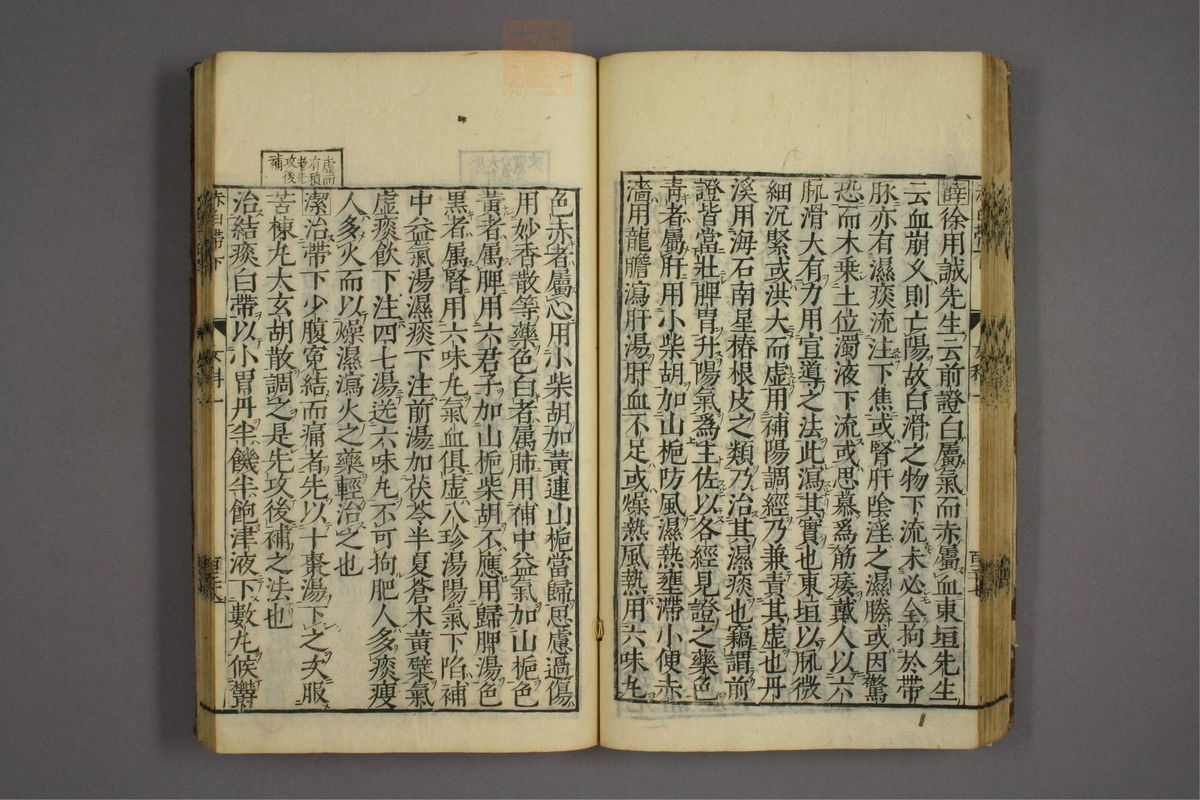 薛徐用誠先生云前證白屬氣而赤屬血東垣先生
云血崩久則亡陽故白滑之物下流未必全拘於帶
脉亦有濕痰流注下焦或腎肝陰淫之濕勝或因驚
恐而木乗土位濁液下流或思慕爲筋痿戴人以六
脈滑大有力用宣導之法此瀉其實也東垣以脈微
細沉緊或洪大而虚用補陽調經乃兼責其虚也丹
溪用海石南星椿根皮之類乃治其濕痰也竊謂前
證皆當壯脾胃升陽氣爲主佐以各經見證之藥色
靑者屬肝用小柴胡加山梔防風濕熱壅滯小便赤
濇用龍膽瀉肝湯肝血不足或燥熱風熱用六味丸
色赤者屬心用小柴胡加黃連山梔當歸思慮過傷
用妙香散等藥色白者屬肺用補中益氣加山梔色
黃者属脾用六君子加山梔柴胡不應用歸脾湯色
黑者属腎用六味丸氣血俱虚八珍湯陽氣下陷補
中益氣湯濕痰下注前湯加茯苓半夏蒼朮黃蘗氣
虚痰飲下注四七湯送六味丸不可拘肥人多痰瘦
人多火而以燥濕瀉火之藥輕治之也
虚而有積者先攻後補
潔治帶下少腹寃結而痛者先以十棗湯下之次服
苦楝丸大玄胡散調之是先攻後補之法也
治結痰白帶以小胃丹半饑半飽津液下數丸候欝
赤白帶下
女科一